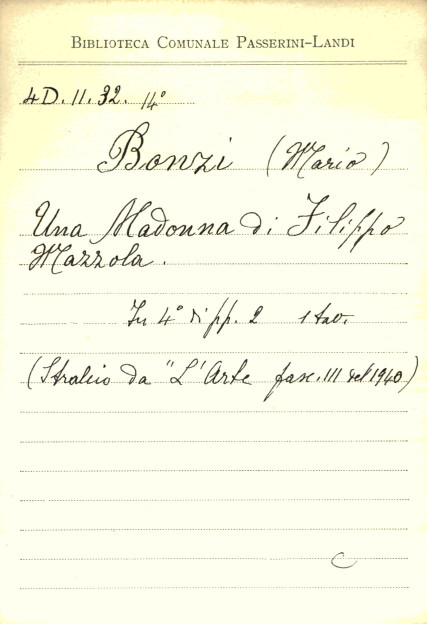 BIBLIOTECA COMUNALE PASSERINI-LANDI
4D. 11. 32. 14°
Bonzi (Mario)
Una Madonna di Filippo
Mazzola.
In 4° di pp. 2 1 tav.
(Stralcio da "L'Arte fasc. III del 1940)
C